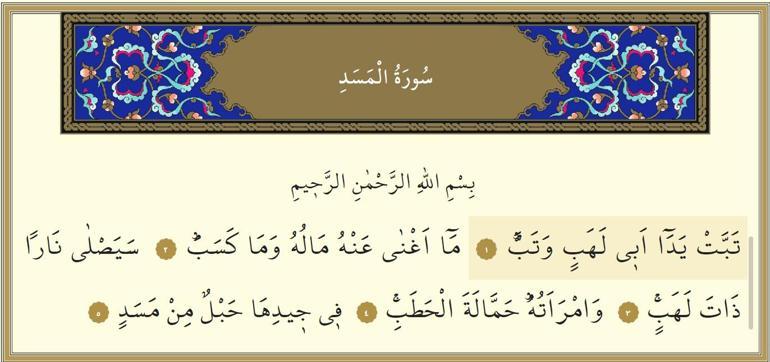 سُورَةُ الْمَسَدِ
بِسْمِ اللهِ الرَّحْمٰنِ الرَّح۪يمِ
تَبَّتْ يَدَٓا اَب۪ي لَهَبٍ وَتَبَّۜ ﴿١﴾ مَٓا اَغْنٰى عَنْهُ مَالُهُ وَمَا كَسَبَۜ ﴿٢﴾ سَيَصْلٰى نَارًا
ذَاتَ لَهَبٍۚ ﴿٣﴾ وَامْرَاَتُهُۜ حَمَّالَةَ الْحَطَبِۚ ﴿٤﴾ ف۪ي ج۪يدِهَا حَبْلٌ مِنْ مَسَدٍ ﴿٥﴾